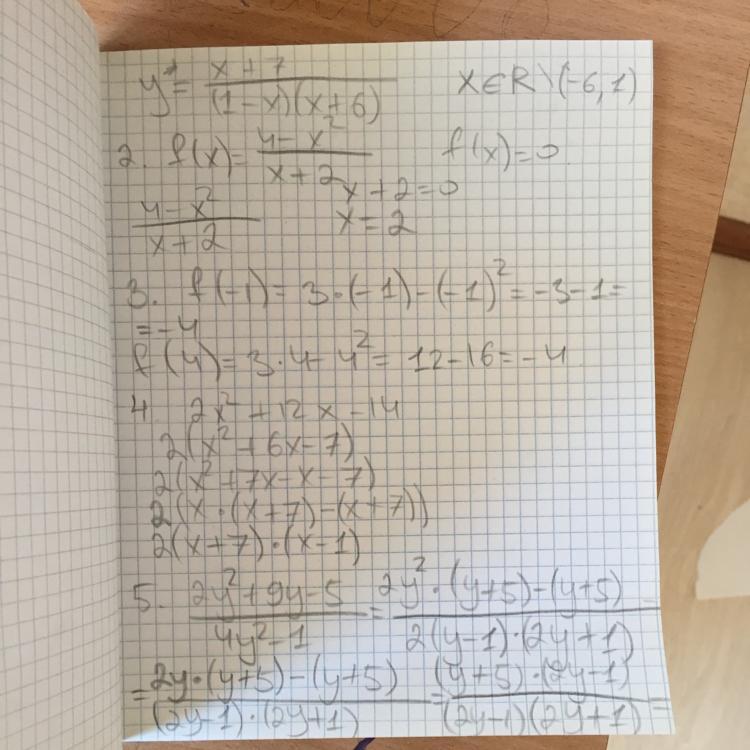 y = x + 7 / (1-x)(x+6) x∈R \ (-6, 1)
2. f(x) = 4-x² / x+2 f(x)=0
4-x² / x+2 x+2=0
x=2
3. f(-1) = 3·(-1)-(-1)² = -3-1=
= -4
f(4) = 3·4-4² = 12-16 = -4
4 2x² + 12x - 14
2(x² + 6x - 7)
2(x² + 7x - x - 7)
2(x·(x+7)-(x+7))
2(x+7)·(x-1)
5. 2y² + 9y - 5 / 4y² - 1 = 2y²·(y+5)-(y+5) / 2(y-1)·(2y+1)
= 2y·(y+5)-(y+5) / (2y-1)·(2y+1) = (y+5)·(2y-1) / (2y-1)(2y+1) =